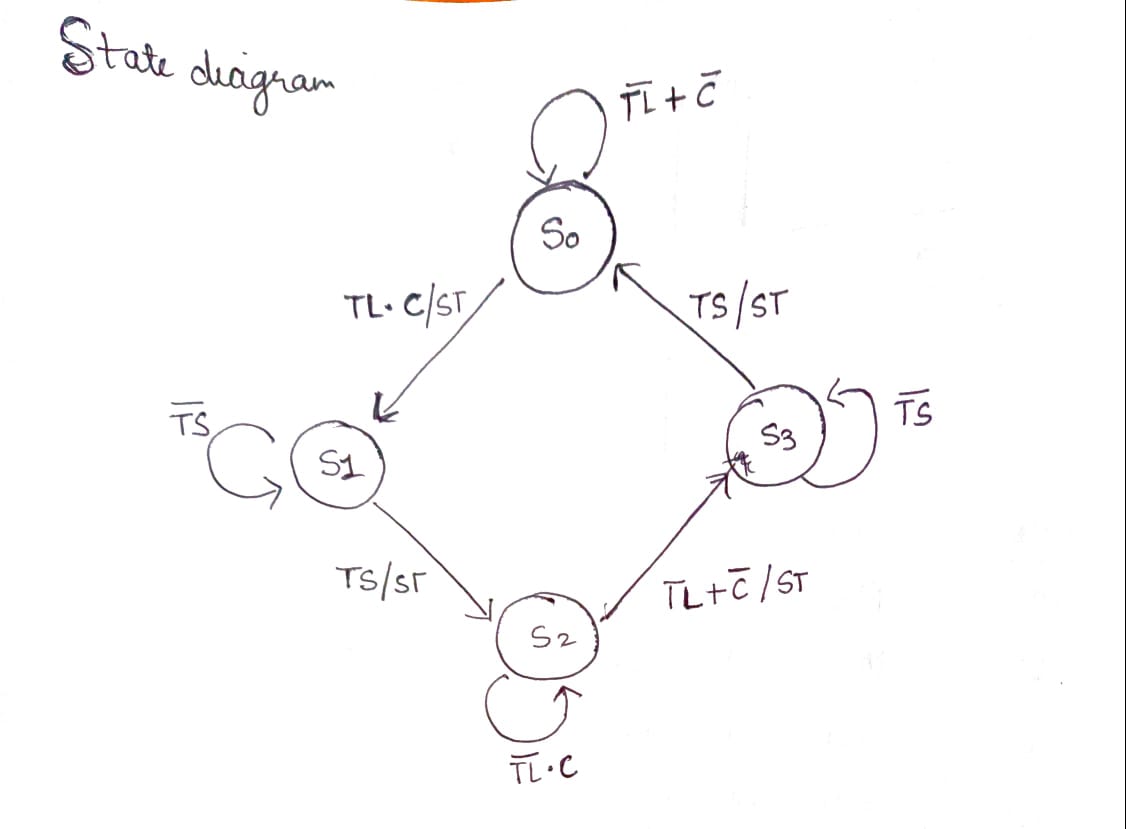 State diagram
T̅L̅ + C̅
S0
TL. C/ST
TS/ST
T̅S̅
S1
S3
T̅S̅
TS/ST
TL+C̅/ST
S2
T̅L̅.C